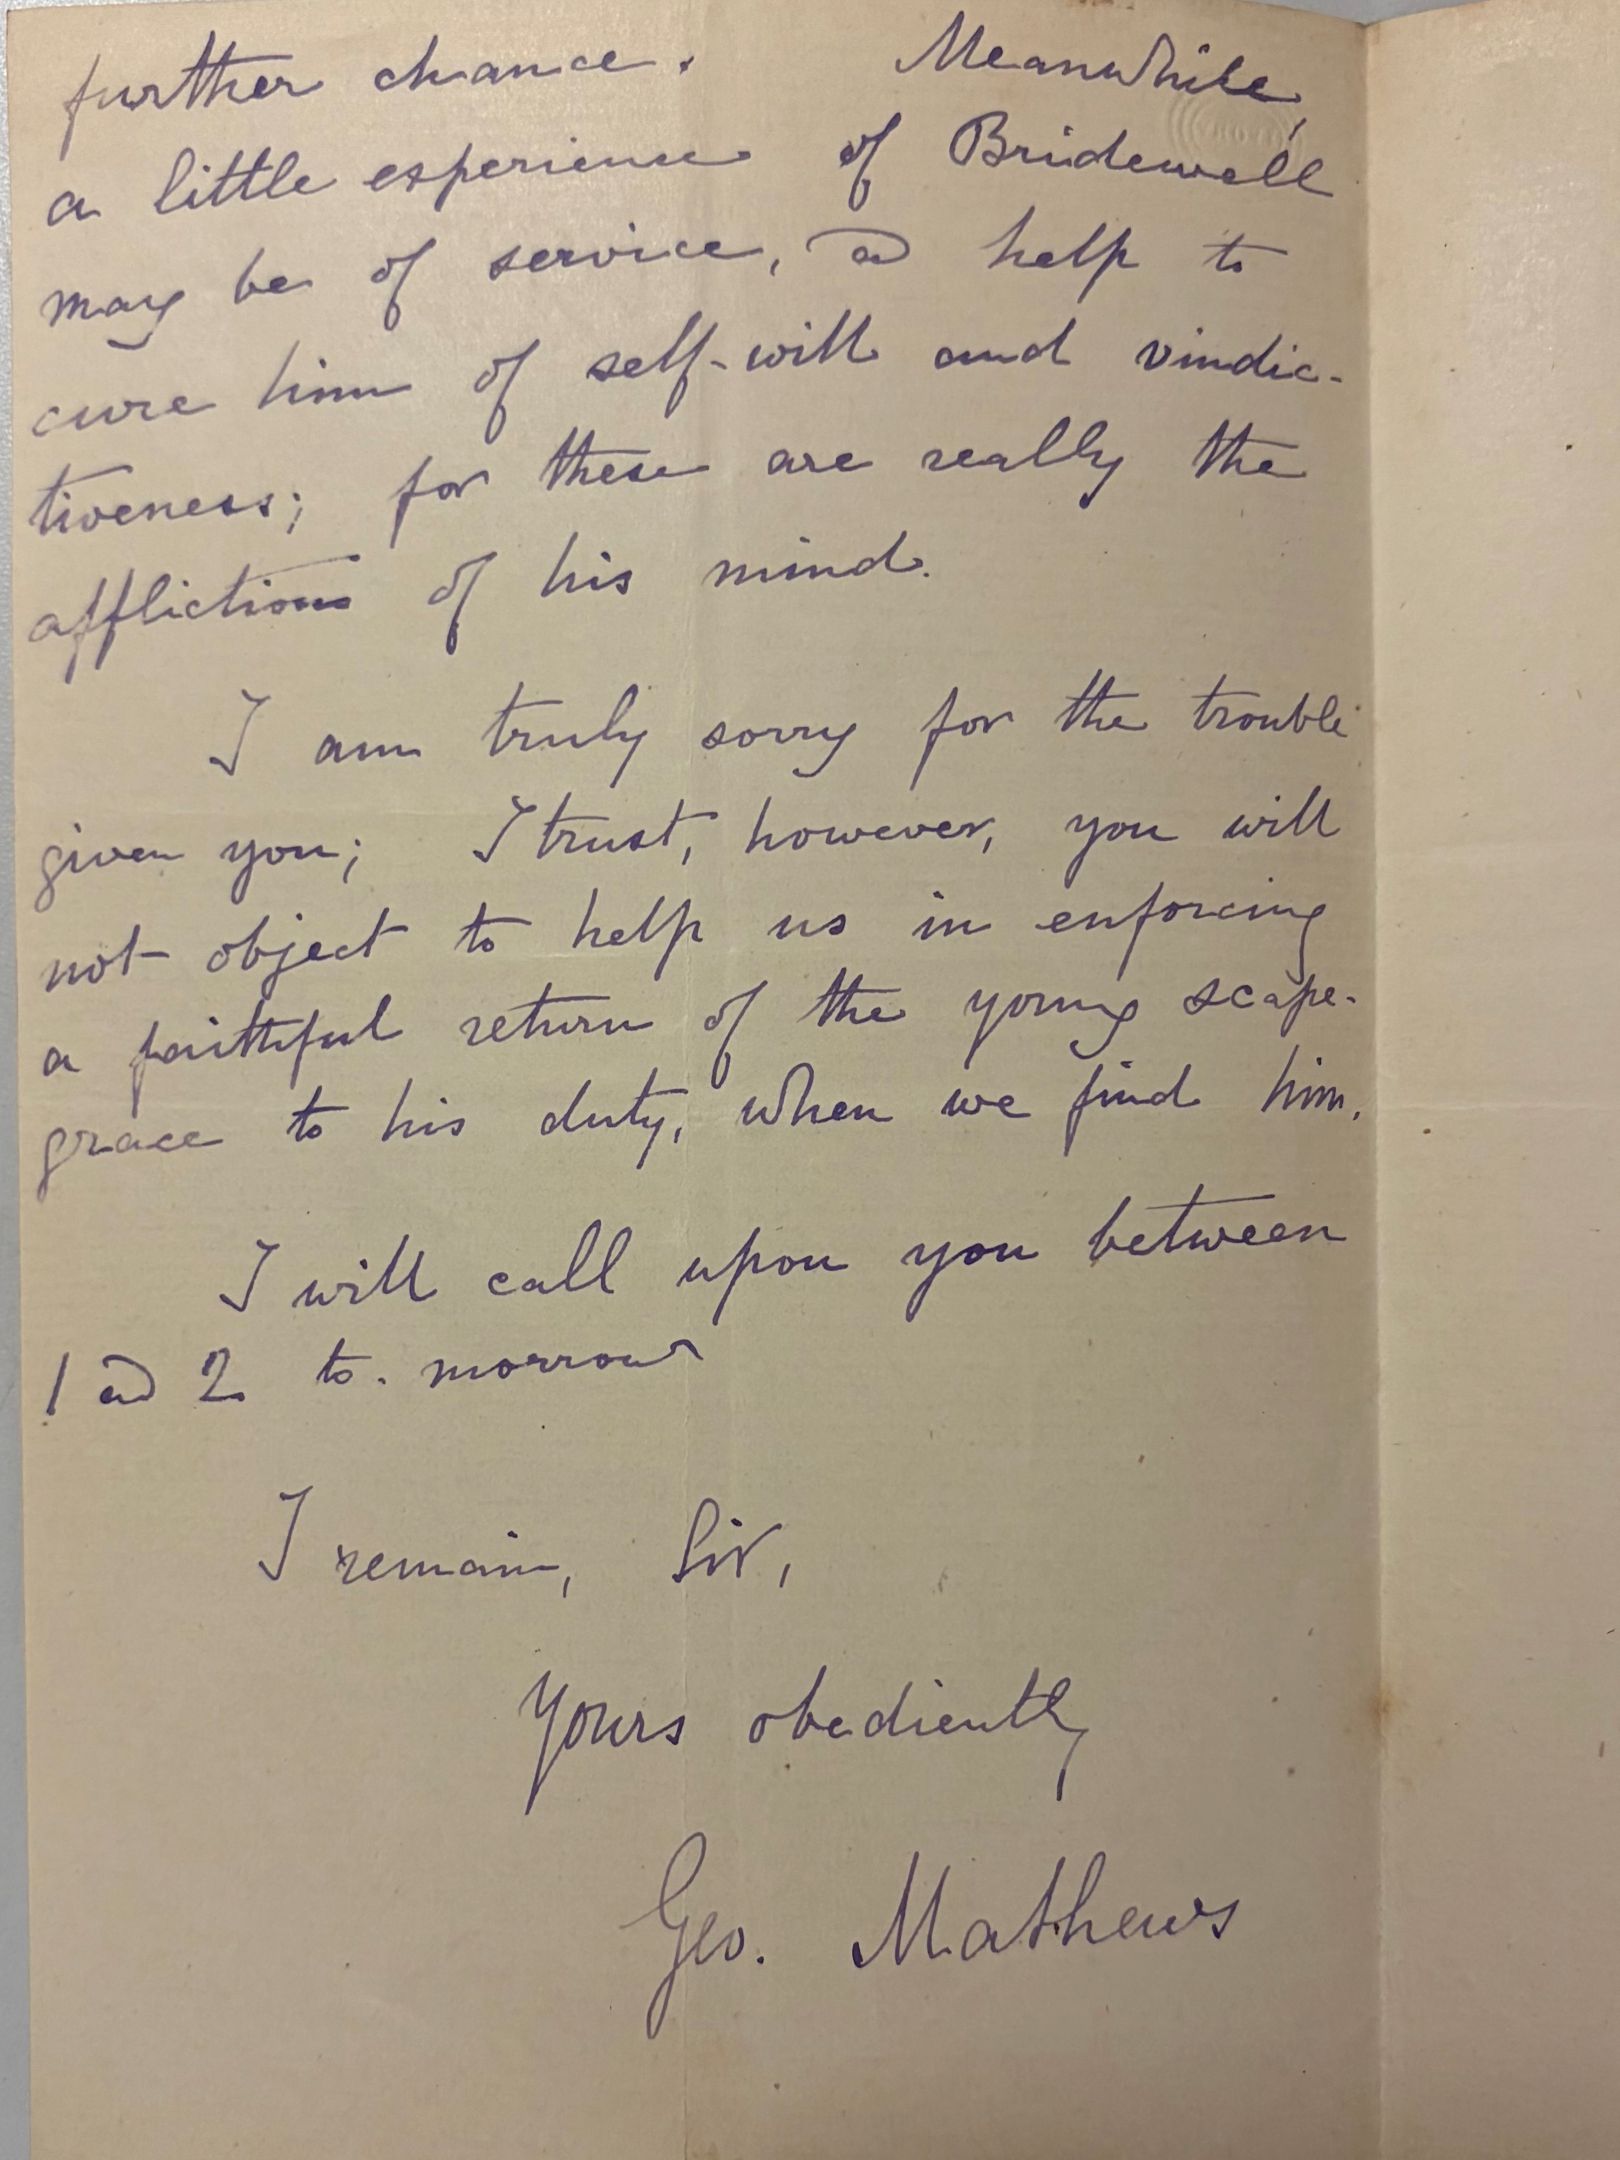 further chance. Meanwhile,
a little experience of Bridewell
may be of service, and help to
cure him of self-will and vindic-
tiveness; for these are really the
afflictions of his mind.
I am truly sorry for the trouble
given you; I trust, however, you will
not object to help us in enforcing
a faithful return of the young scape-
grace to his duty, when we find him.
I will call upon you between
1 and 2 to-morrow
I remain, Sir,
Yours obediently
Geo. Mathews